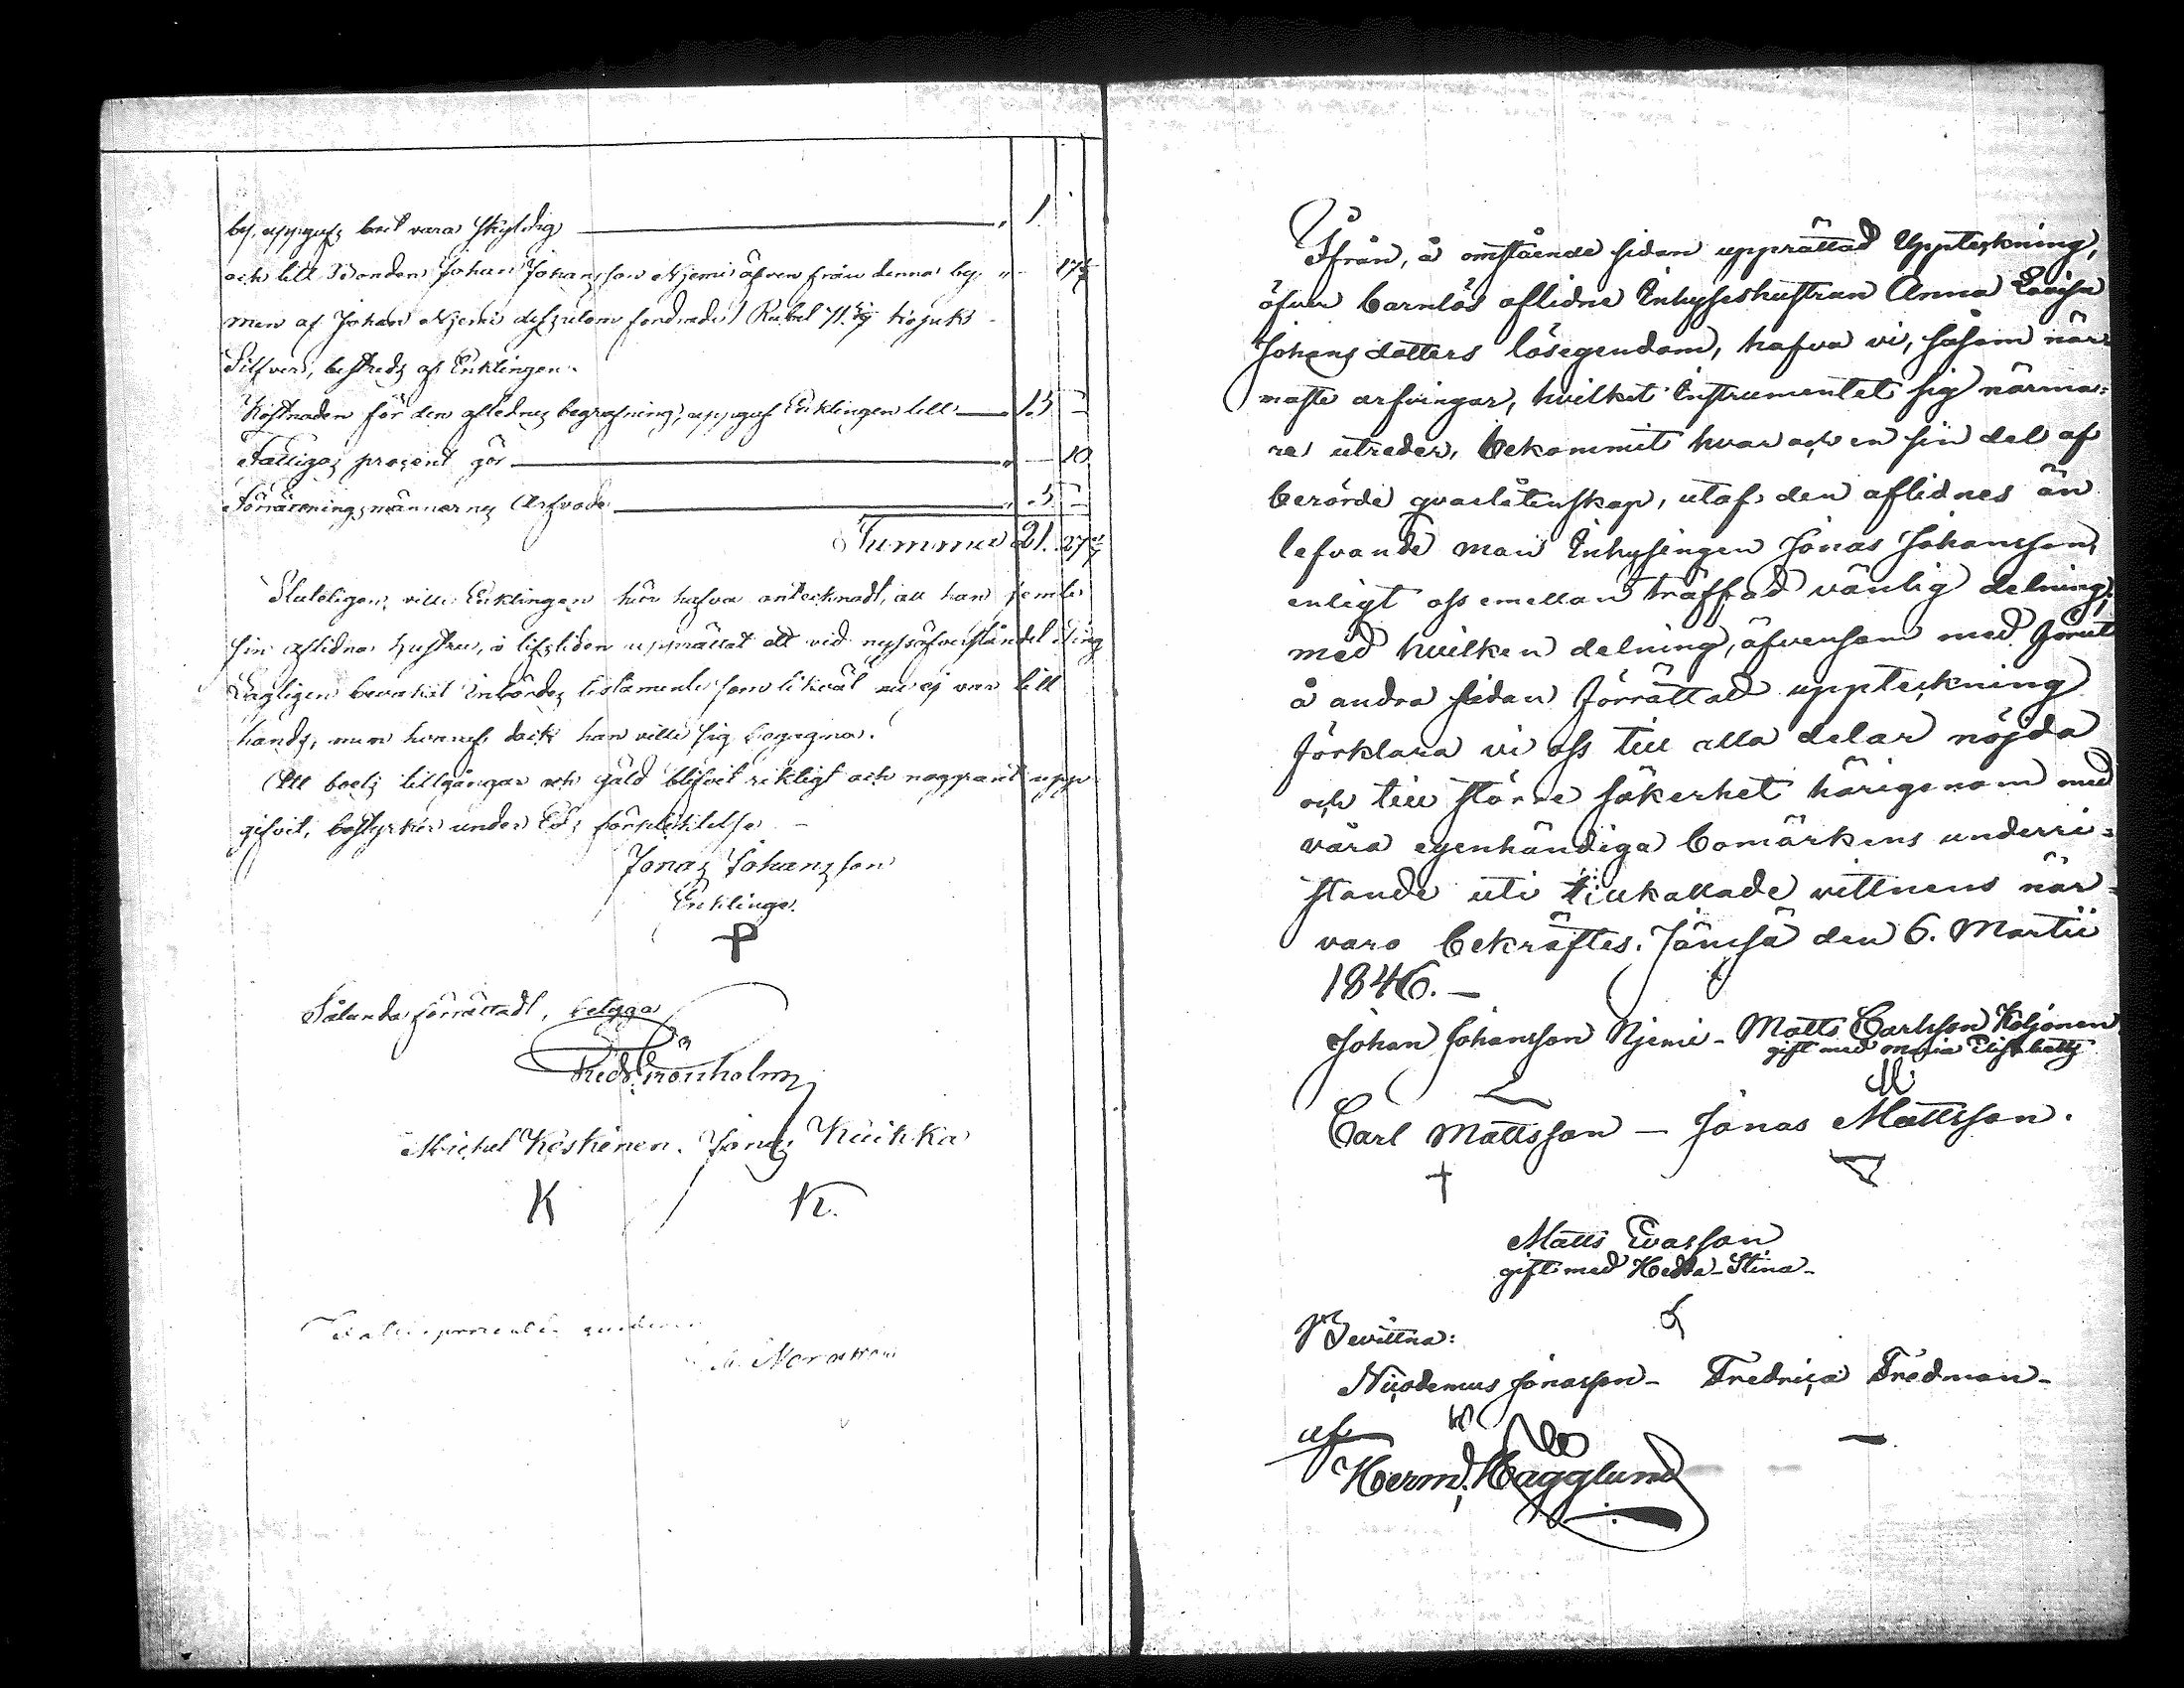 by, uppgafs boet vara skyldig " 1.
och till Bonden Johan Johansson Njemi äfven från denna by " — 17 1/7
men af Johan Njemi dessutom fordrade Rubel 71. 3/7 kopek
Silfver, bestreds af Enklingen.
Kostnaden för den aflidnes begrafning, uppgaf Enklingen till 15 —
Fattigas procent gör " — 10
Förrättningsmännernes Arfvode " 5 —
Summa 21. 27 1/7
Sluteligen ville Enklingen här hafva antecknadt, att han jemte
sin aflidna hustru, i lifstiden upprättat ett vid Ting
Lagligen bevakat Inbördes testamente som likväl nu ej var till
hands, men hvaraf dock han ville sig begagna.
Att boets tillgångar och gäld blifvit riktigt och noggrant upp
gifvit, bestyrker under Eds förpliktelse —
Jonas Johansson
Enklinge.
P
Sålunda förrättadt, betyga
Fredr Grönholm
Michel Koskinen. Jonas Kuikka
K K.
Fattigprocenten
Ifrån, å omstående sidan upprättad Uppteckning,
öfver barnlös aflidne Inhyseshustrun Anna Lovisa
Johansdotters lösegendom, hafva vi, såsom när-
maste arfvingar, hvilket Instrumentet sig närma=
re utreder, bekommit hvar och en sin del af
berörde qvarlåtenskap, utaf den aflidnes än
lefvande man Inhysingen Jonas Johansson,
enligt oss emellan träffad vänlig delning;
med hvilken delning, äfvensom med förut
å andra sidan förrättad uppteckning
förklara vi oss till alla delar nöjda
och till större säkerhet härigenom med
våra egenhändiga bomärkens underri=
stande uti tillkallade vittnens när=
varo bekräftes. Jämsä den 6. Martii
1846. —
Johan Johansson Njemi — Matts Carlsson Koljonen
gift med Maria Elisabeth
Carl Mattsson — Jonas Mattsson.
Matts Evasson
gift med Hedda-Stina —
Bevittna:
Nicodemus Jonasson — Fredrica Fredman —
af
Herm. Hägglund